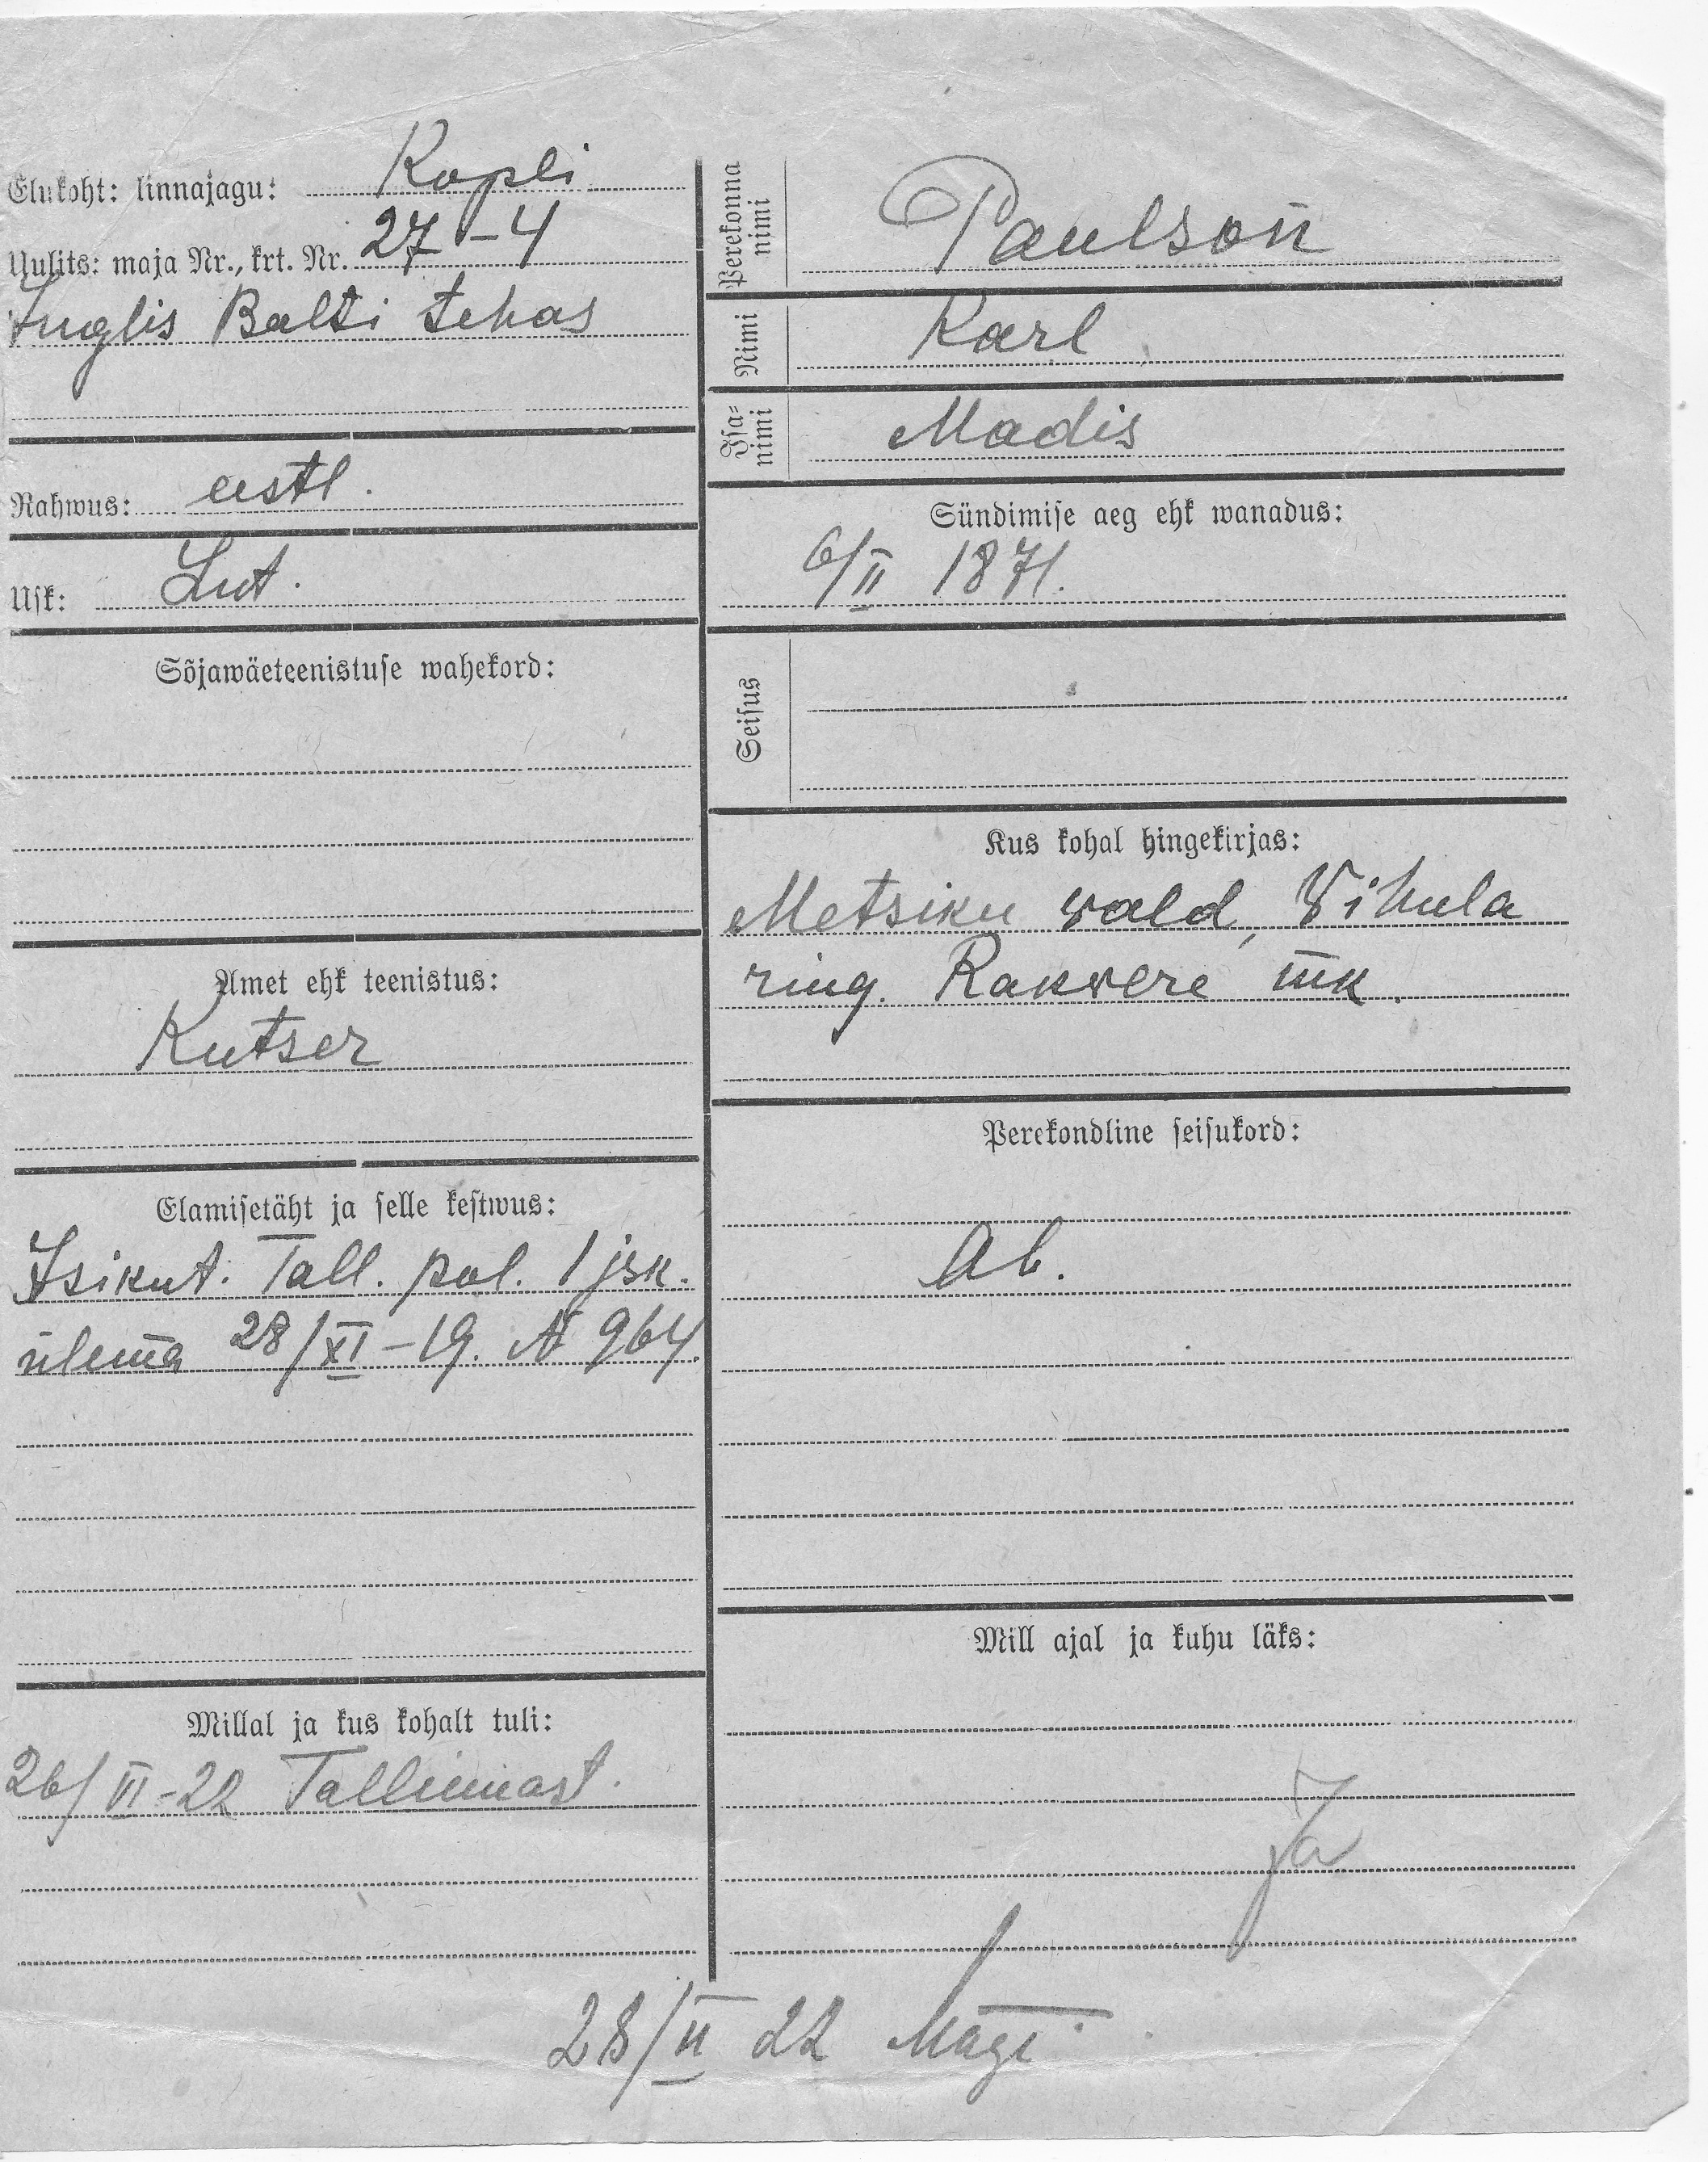 Elukoht: linnajagu: Kopli
Uulits: maja Nr., krt. Nr. 27-4
Inglis Balti tehas
Rahwus: eestl.
Usk: Lut.
Sõjawäeteenistuse wahekord:
Amet ehk teenistus:
Kutser
Elamisetäht ja selle kestwus:
Isikut. Tall. pol. 1 jsk.
ülema 28/XI-19. № 964.
Millal ja kus kohalt tuli:
26/III-22 Tallinnast.
Perekonna
nimi
Paulson
Nimi Karl
Isa-
nimi
Madis
Sündimise aeg ehk wanadus:
6/II 1871.
Seisus
Kus kohal hingekirjas:
Metsiku wald, Wihula
ring. Rakwere mk.
Perekondline seisukord:
Ab.
Mill ajal ja kuhu läks:
28/II 22 Mägi